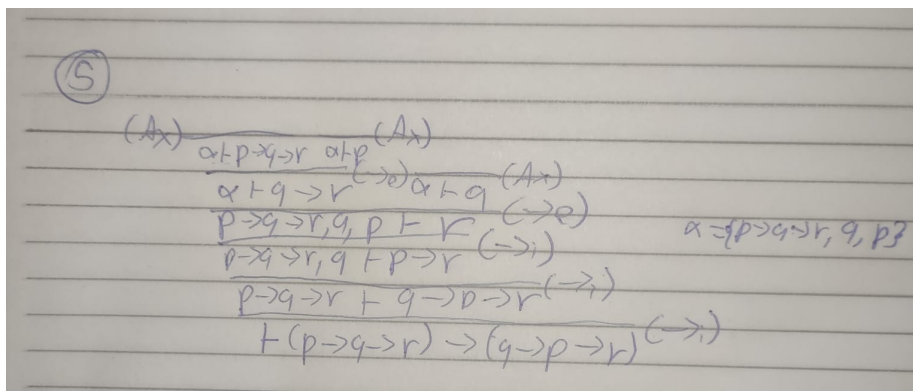 5
(Ax) (Ax)
α⊢p→q→r α⊢p (→e) (Ax)
α⊢q→r α⊢q (→e)
p→q→r,q,p⊢r (→i) α={p→q→r, q, p}
p→q→r,q⊢p→r (→i)
p→q→r⊢q→p→r (→i)
⊢(p→q→r)→(q→p→r)